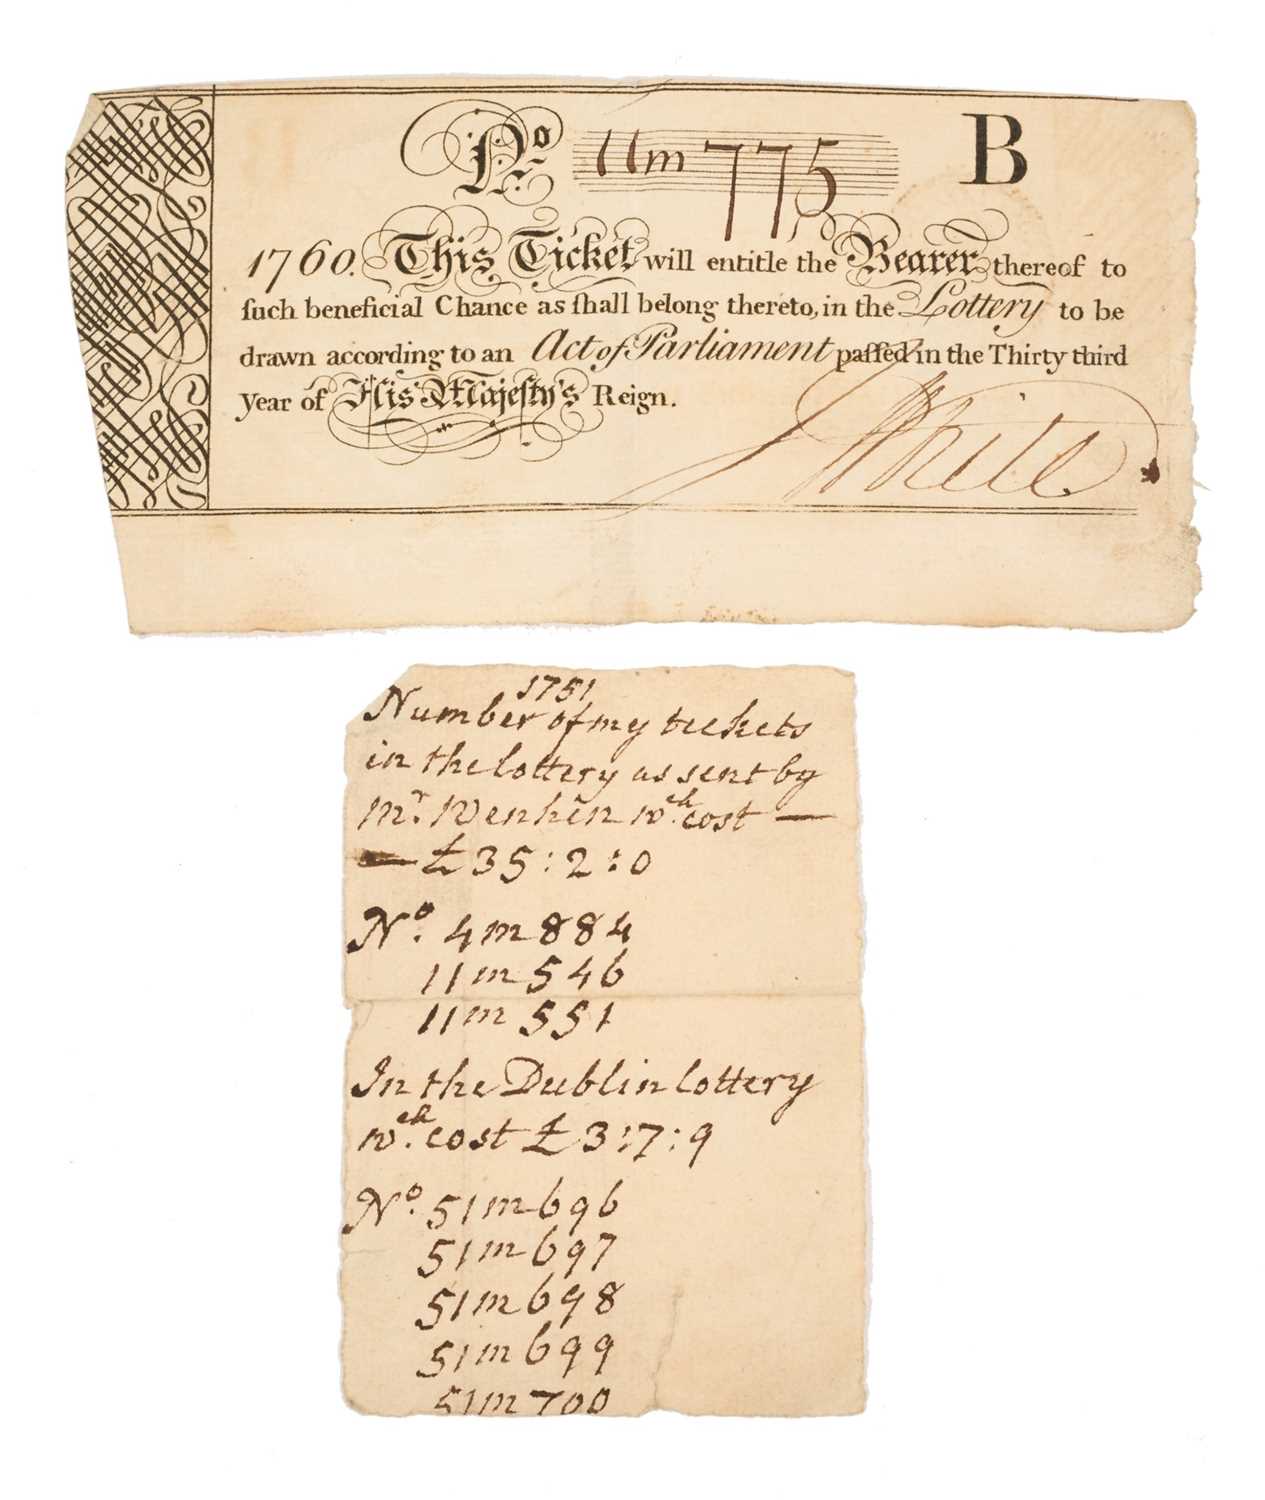 No 11m775 B
1760. This Ticket will entitle the Bearer thereof to
ſuch beneficial Chance as ſhall belong thereto, in the Lottery to be
drawn according to an Act of Parliament paſſed in the Thirty third
Year of His Majesty's Reign.
White
1751
Number of my tickets
in the lottery as sent by
Mr. Wenhen wch. cost —
— £35:2:0
No. 4m884
11m546
11m551
In the Dublin lottery
wch. cost £3:7:9
No. 51m696
51m697
51m698
51m699
51m700